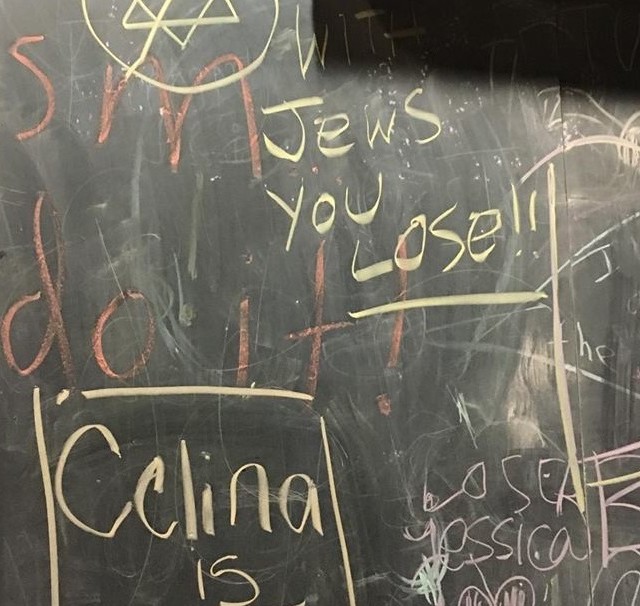 WITH
JEWS
YOU
LOSE!!
sm
do it!
Celina
is
the
LOSER
Jessica